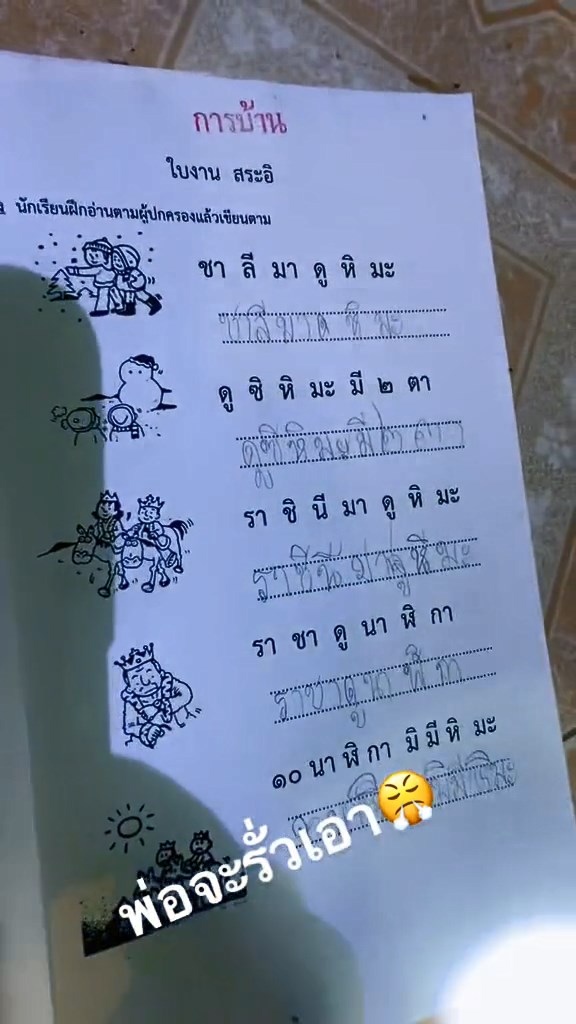 การบ้าน
ใบงาน สระอิ
นักเรียนฝึกอ่านตามผู้ปกครองแล้วเขียนตาม
ชา ลี มา ดู หิ มะ
ชาลีมาด หิ มะ
ดู ซิ หิ มะ มี ๒ ตา
ดูซิหิมะมี๒ ตา
รา ชิ นี มา ดู หิ มะ
ราชินีมาดูหิมะ
รา ชา ดู นา ฬิ กา
ราชาดูนาฬิกา
๑๐ นา ฬิ กา มิ มี หิ มะ
พ่อจะรั่วเอา😤